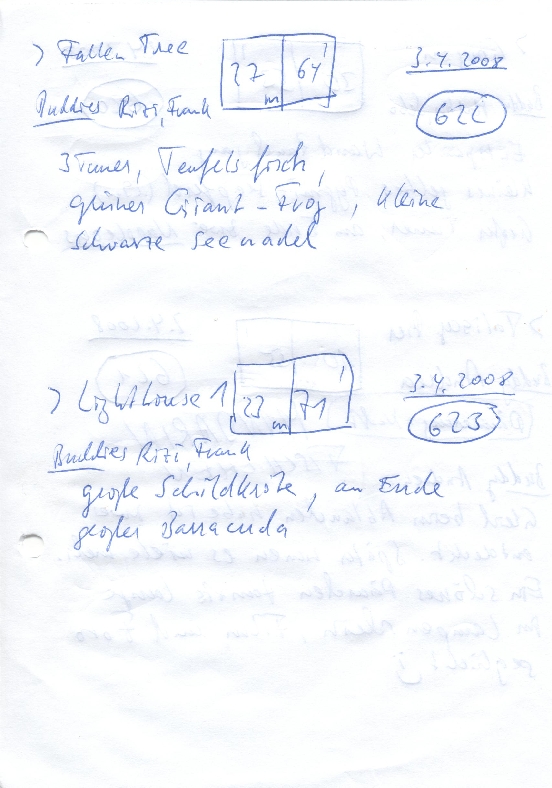 > Fallen Tree
27 m 64'
3.4.2008
Buddies Rizi, Frank
622
3 Tuner, Teufelsfisch,
grüner Giant-Frog, kleine
schwarze Seenadel
> Lighthouse 1
23 m 71'
3.4.2008
623
Buddies Rizi, Frank
große Schildkröte, am Ende
großer Barracuda